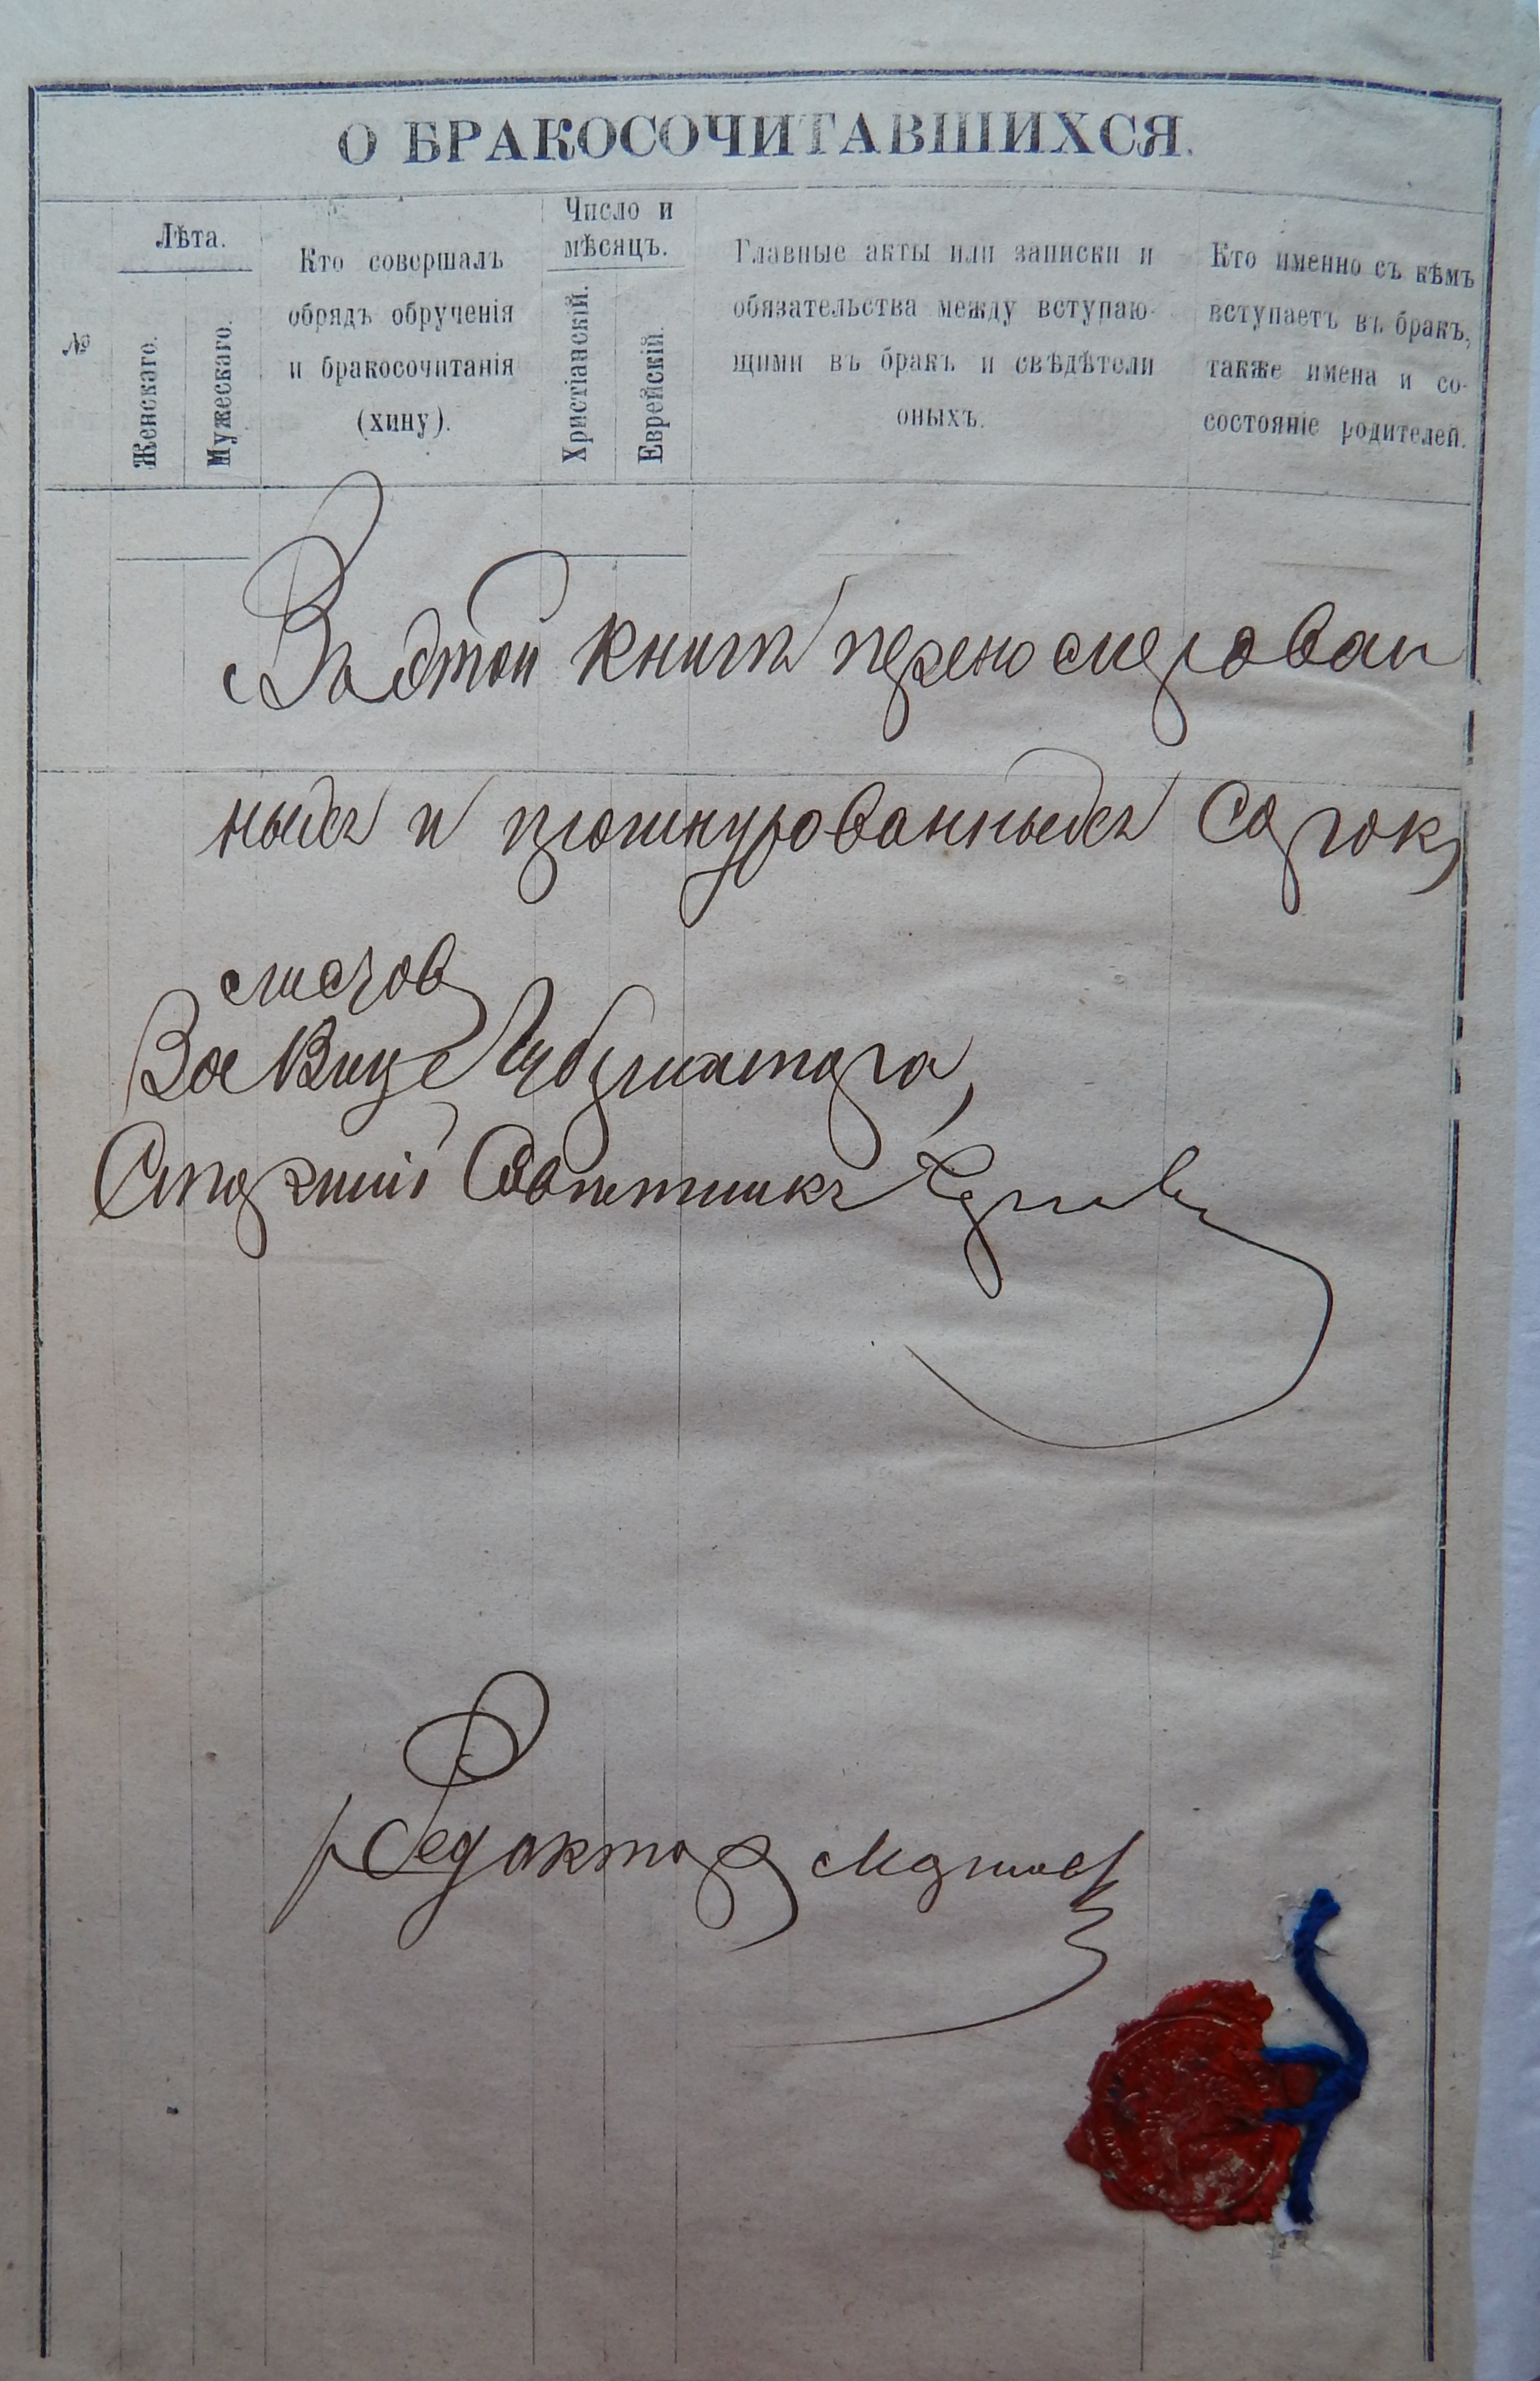 О БРАКОСОЧИТАВШИХСЯ.
№
Лѣта.
Женскаго.
Мужескаго.
Кто совершалъ
обрядъ обрученія
и бракосочитанія
(хину).
Число и
мѣсяцъ.
Христіанскій.
Еврейскій.
Главные акты или записки и
обязательства между вступаю-
щими въ бракъ и свѣдѣтели
оныхъ.
Кто именно съ кѣмъ
вступаетъ въ бракъ,
также имена и со-
состояніе родителей.
Въ этой книгѣ перенумерован
ныхъ и прошнурованныхъ сорокъ
листовъ
За Вице Губернатора,
Старшій Совѣтникъ
Редакторъ